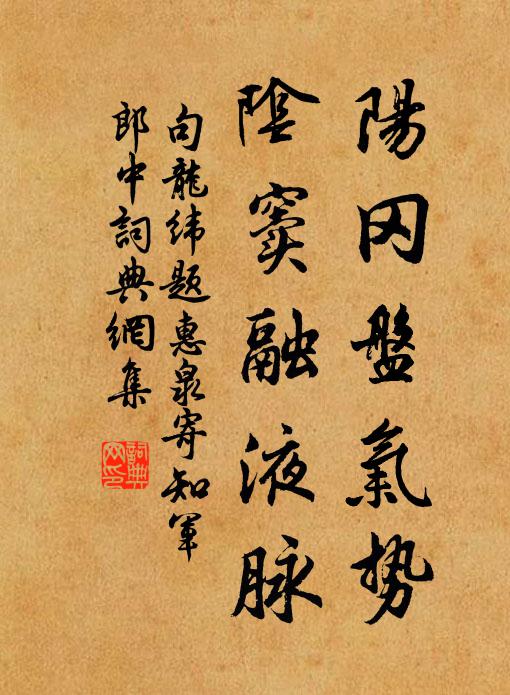 陽冈盤氣势
陰窦融液脉
句龍纬题惠泉寄知軍
郎中詞典網集
詞典
网印